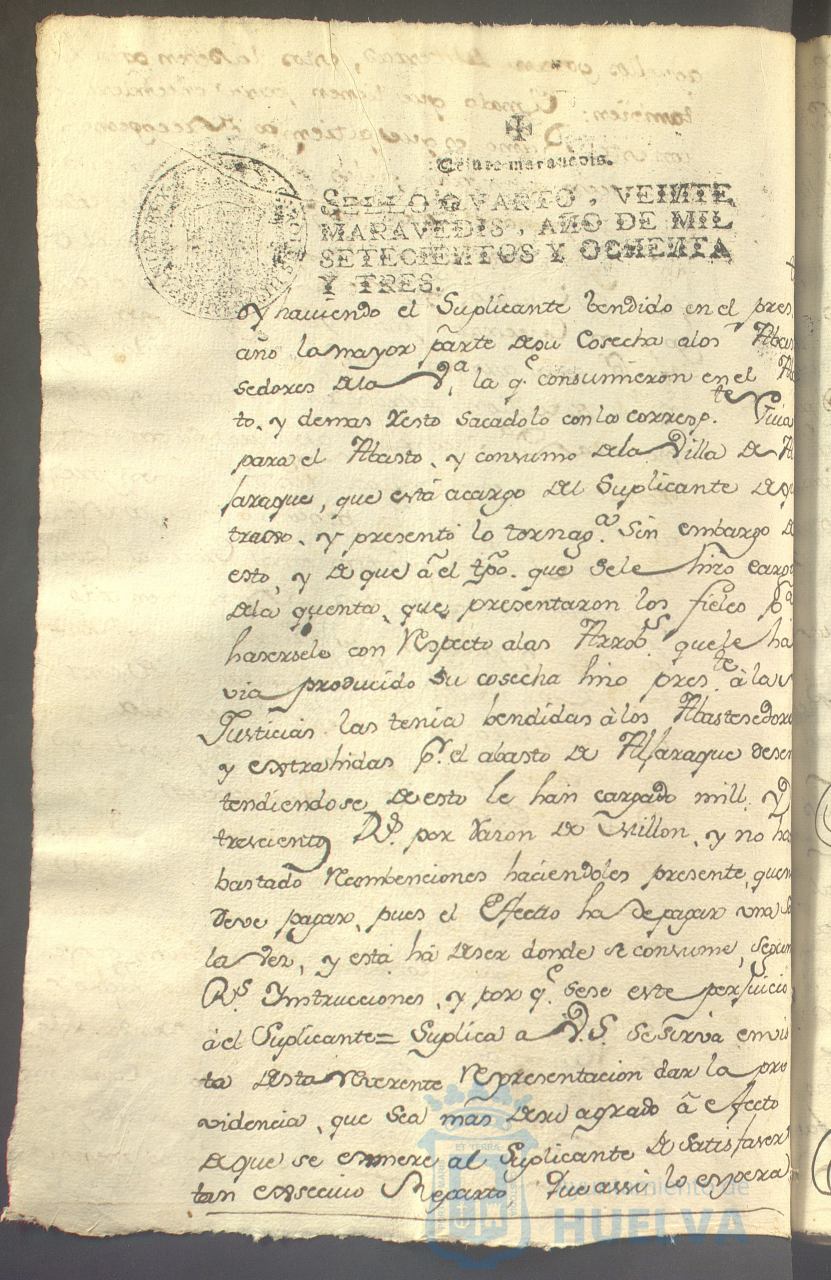 Veinte maravedis.
SELLO QVARTO, VEINTE
MARAVEDIS, AÑO DE MIL
SETECIENTOS Y OCHENTA
Y TRES.
Y haviendo el Suplicante bendido en el pres.
año la mayor parte de su Cosecha a los Abas
sedores de la V.ª, la q.e consumieron en el
to, y demas resto sacadolo con la corresp.te Guia
para el Abasto, y consumo de la Villa de Al
jaraque, que está a cargo del Suplicante
y presentó la tornag.ª Sin embargo de
esto, y de que â el tpô. que se le hizo cargo
de la quenta, que presentaron los fieles p.ª
haserselo con respecto a las Arrob.s que le ha
via producido su cosecha hizo pres.te à la
Justicia, las tenia bendidas à los Abastesedores
y extrahidas p.r el abasto de Aljaraque desen
tendiendose de esto le han cargado mill y
trescientos R.s por razon de Millon, y no ha
bastado recombenciones haciendoles presente, que no
deve pagar, pues el Efecto ha de pagar una so
la vez, y está há de ser donde se consume, segun
R.s Ynstrucciones, y por q.e sese este perjuicio
à el Suplicante = Suplica a V.S. se sirva en vis
ta de esta reverente representacion dar la pro
videncia, que sea mas de su agrado â efecto
de que se exonere al Suplicante de satisfaser
tan exsecivo Reparto, que assi lo espera
Ayuntamiento de
HUELVA